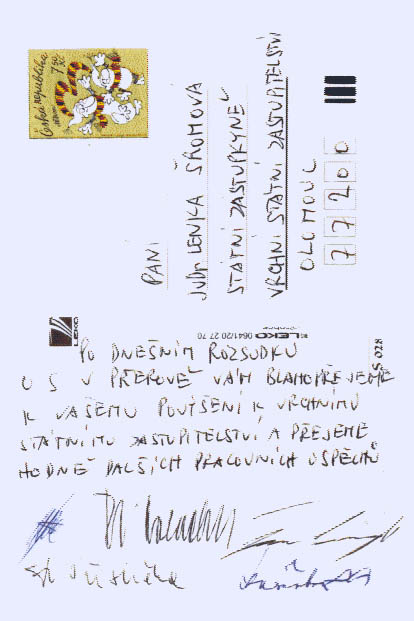 Česká republika
7,50 Kč
PANÍ
JUDr LENKA ŠROMOVÁ
STÁTNÍ ZÁSTUPKYNĚ
VRCHNÍ STÁTNÍ ZASTUPITELSTVÍ
OLOMOUC
77200
LEKO
LEKO 0641/20 27 70
S 028
PO DNEŠNÍM ROZSUDKU
U S V PŘEROVĚ VÁM BLAHOPŘEJEME
K VAŠEMU POVÝŠENÍ K VRCHNÍMU
STÁTNÍMU ZASTUPITELSTVÍ A PŘEJEME
HODNĚ DALŠÍCH PRACOVNÍCH ÚSPĚCHŮ